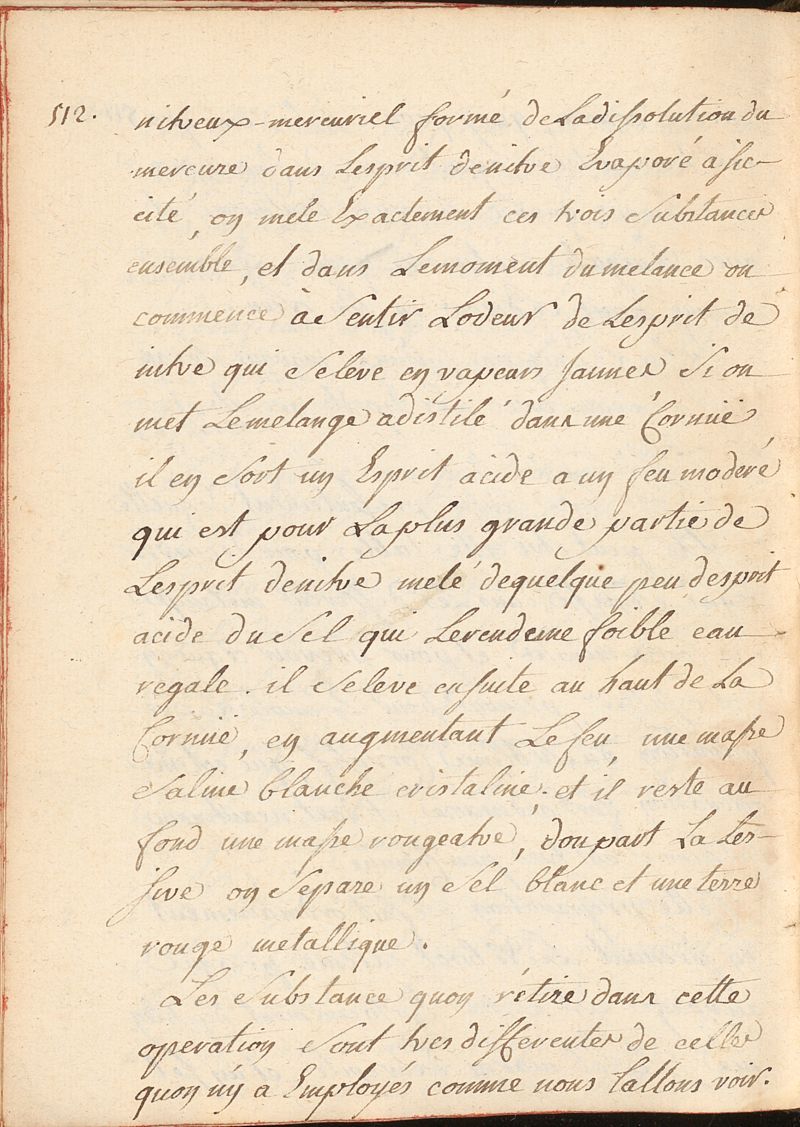 512.
nitreux-mercuriel formé de La dissolution du
mercure dans Lesprit de nitre Evaporé a sic-
cité, on mele Exactement ces trois Substances
ensemble, et dans Lemoment du melance on
commence à Sentir Lodeur de Lesprit de
nitre qui Seleve en vapeurs Jaunes Si on
met Lemelange a distilé dans une Cornüe,
il en Sort un Esprit acide a un feu moderé
qui est pour La plus grande partie de
Lesprit de nitre melé de quelque peu desprit
acide du Sel qui Lerendeme foible eau
regale. il Seleve ensuite au haut de La
Cornüe, en augmentant Le feu, une masse
Saline blanche cristaline. et il reste au
fond une masse rougeatre, dou part La Les-
sive on Separe un Sel blanc et une terre
rouge metallique.
Les Substance quon rétire dans cette
operation Sont tres differentes de celles
quon ny a Employés comme nous lallons voir.